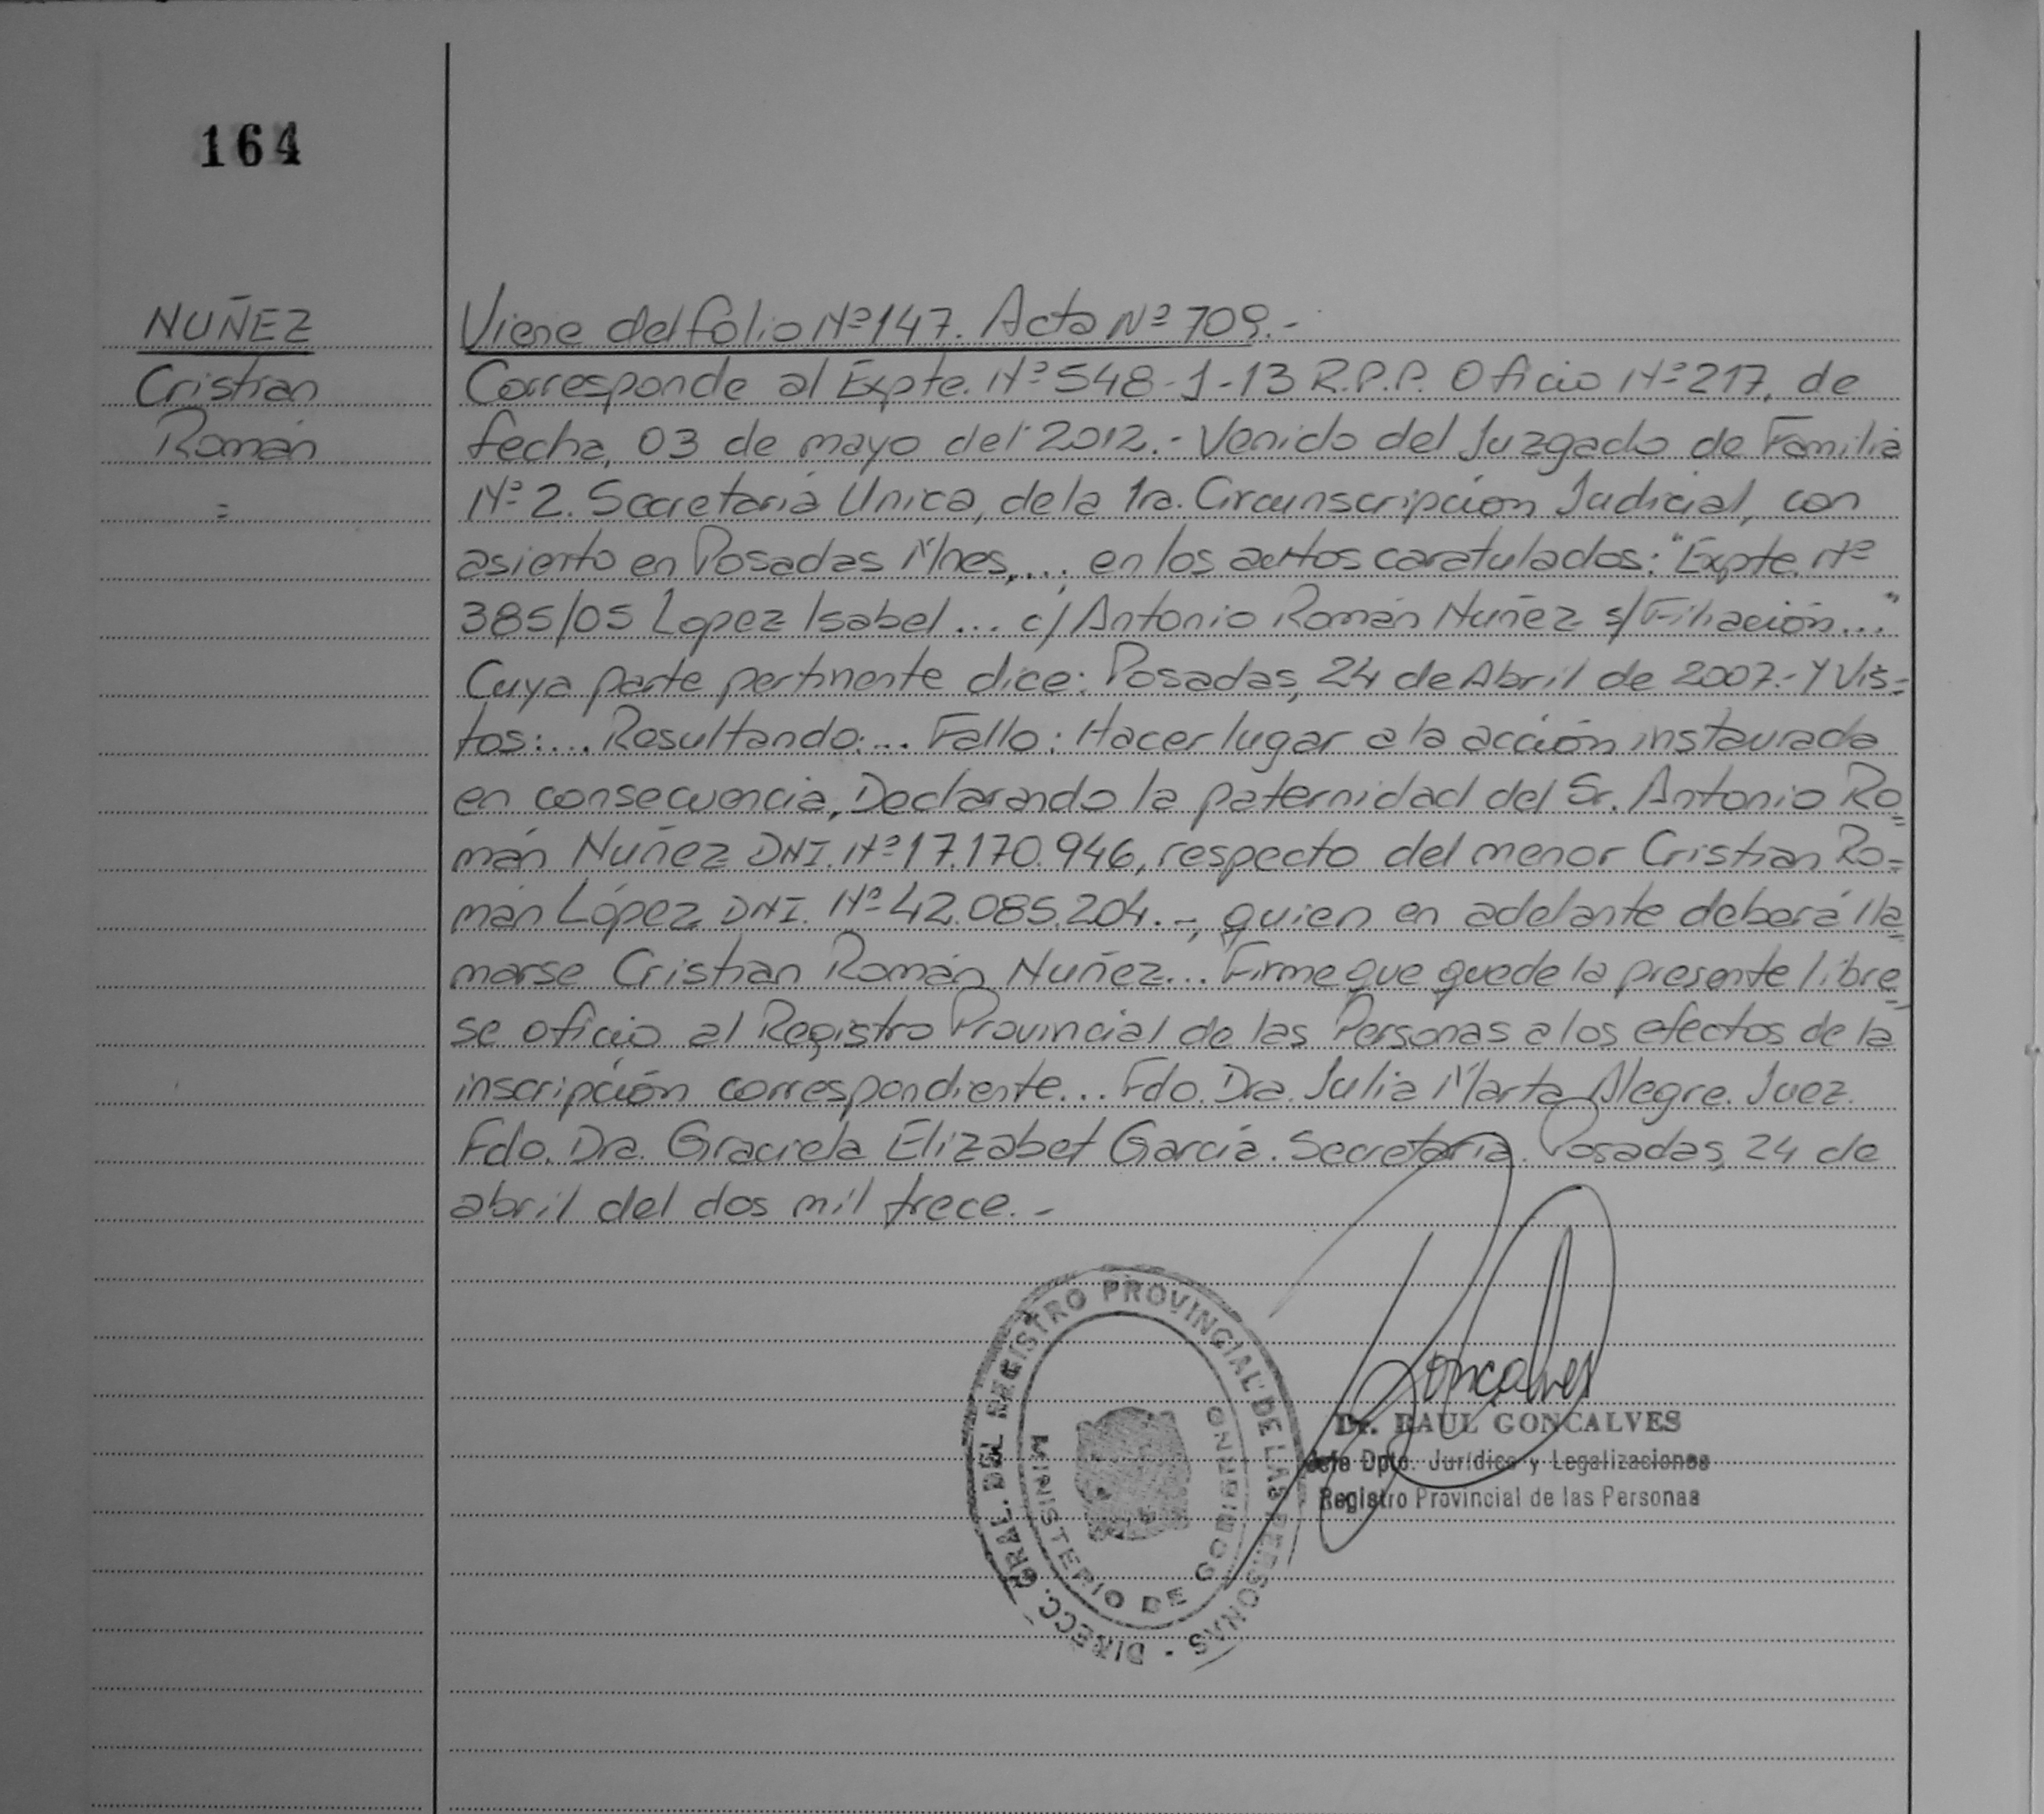 164
NUÑEZ
Cristian
Román
=
Viene del folio Nº 147. Acta Nº 709.-
Corresponde al Expte. Nº 548-1-13 R.P.P. Oficio Nº 217, de
fecha, 03 de mayo del 2012.- Venido del Juzgado de Familia
Nº 2. Secretaria Unica, de la 1ra. Circunscripción Judicial, con
asiento en Posadas Mnes,... en los autos caratulados: "Expte. Nº
385/05 Lopez Isabel... c/ Antonio Román Nuñez s/ Filiación..."
Cuya parte pertinente dice: Posadas, 24 de Abril de 2007.- Y Vis=
tos:... Resultando:... Fallo: Hacer lugar a la acción instaurada
en consecuencia, Declarando la paternidad del Sr. Antonio Ro=
mán Nuñez DNI. Nº 17.170.946, respecto del menor Cristian Ro=
mán López DNI. Nº 42.085.204.-, quien en adelante deberá lla=
marse Cristian Román Nuñez... Firme que quede la presente libre=
se oficio al Registro Provincial de las Personas a los efectos de la
inscripción correspondiente... Fdo. Dra. Julia Marta Alegre. Juez.
Fdo. Dra. Graciela Elizabet García. Secretaria. Posadas, 24 de
abril del dos mil trece.-
DIRECC. GRAL. DEL REGISTRO PROVINCIAL DE LAS PERSONAS -
MINISTERIO DE GOBIERNO
Goncalves
Dr. RAUL GONCALVES
Jefe Dpto. Jurídico y Legalizaciones
Registro Provincial de las Personas